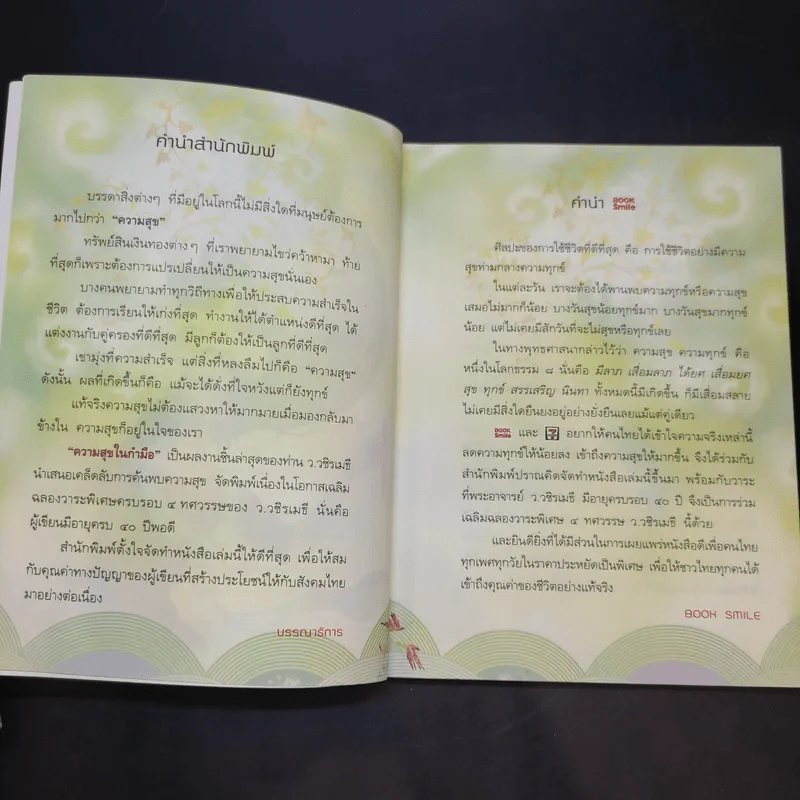 คำนำสำนักพิมพ์
บรรดาสิ่งต่างๆ ที่มีอยู่ในโลกนี้ไม่มีสิ่งใดที่มนุษย์ต้องการ
มากไปกว่า “ความสุข”
ทรัพย์สินเงินทองต่างๆ ที่เราพยายามไขว่คว้าหามา ท้าย
ที่สุดก็เพราะต้องการแปรเปลี่ยนให้เป็นความสุขนั่นเอง
บางคนพยายามทำทุกวิถีทางเพื่อให้ประสบความสำเร็จใน
ชีวิต ต้องการเรียนให้เก่งที่สุด ทำงานให้ได้ตำแหน่งดีที่สุด ได้
แต่งงานกับคู่ครองที่ดีที่สุด มีลูกก็ต้องให้เป็นลูกที่ดีที่สุด
เขามุ่งที่ความสำเร็จ แต่สิ่งที่หลงลืมไปก็คือ “ความสุข”
ดังนั้น ผลที่เกิดขึ้นก็คือ แม้จะได้ดั่งที่ใจหวังแต่ก็ยังทุกข์
แท้จริงความสุขไม่ต้องแสวงหาให้มากมายเมื่อมองกลับมา
ข้างใน ความสุขก็อยู่ในใจของเรา
“ความสุขในกำมือ” เป็นผลงานชิ้นล่าสุดของท่าน ว.วชิรเมธี
นำเสนอเคล็ดลับการค้นพบความสุข จัดพิมพ์เนื่องในโอกาสเฉลิม
ฉลองวาระพิเศษครบรอบ ๔ ทศวรรษของ ว.วชิรเมธี นั่นคือ
ผู้เขียนมีอายุครบ ๔๐ ปีพอดี
สำนักพิมพ์ตั้งใจจัดทำหนังสือเล่มนี้ให้ดีที่สุด เพื่อให้สม
กับคุณค่าทางปัญญาของผู้เขียนที่สร้างประโยชน์ให้กับสังคมไทย
มาอย่างต่อเนื่อง
บรรณาธิการ
คำนำ BOOK Smile
ศิลปะของการใช้ชีวิตที่ดีที่สุด คือ การใช้ชีวิตอย่างมีความ
สุขท่ามกลางความทุกข์
ในแต่ละวัน เราจะต้องได้พานพบความทุกข์หรือความสุข
เสมอไม่มากก็น้อย บางวันสุขน้อยทุกข์มาก บางวันสุขมากทุกข์
น้อย แต่ไม่เคยมีสักวันที่จะไม่สุขหรือทุกข์เลย
ในทางพุทธศาสนากล่าวไว้ว่า ความสุข ความทุกข์ คือ
หนึ่งในโลกธรรม ๘ นั่นคือ มีลาภ เสื่อมลาภ ได้ยศ เสื่อมยศ
สุข ทุกข์ สรรเสริญ นินทา ทั้งหมดนี้มีเกิดขึ้น ก็มีเสื่อมสลาย
ไม่เคยมีสิ่งใดยืนยงอยู่อย่างยั่งยืนเลยแม้แต่คู่เดียว
BOOK Smile และ 7 ELEVEN อยากให้คนไทยได้เข้าใจความจริงเหล่านี้
ลดความทุกข์ให้น้อยลง เข้าถึงความสุขให้มากขึ้น จึงได้ร่วมกับ
สำนักพิมพ์ปราณคิดจัดทำหนังสือเล่มนี้ขึ้นมา พร้อมกับวาระ
ที่พระอาจารย์ ว.วชิรเมธี มีอายุครบรอบ ๔๐ ปี จึงเป็นการร่วม
เฉลิมฉลองวาระพิเศษ ๔ ทศวรรษ ว.วชิรเมธี นี้ด้วย
และยินดียิ่งที่ได้มีส่วนในการเผยแพร่หนังสือดีเพื่อคนไทย
ทุกเพศทุกวัยในราคาประหยัดเป็นพิเศษ เพื่อให้ชาวไทยทุกคนได้
เข้าถึงคุณค่าของชีวิตอย่างแท้จริง
BOOK SMILE